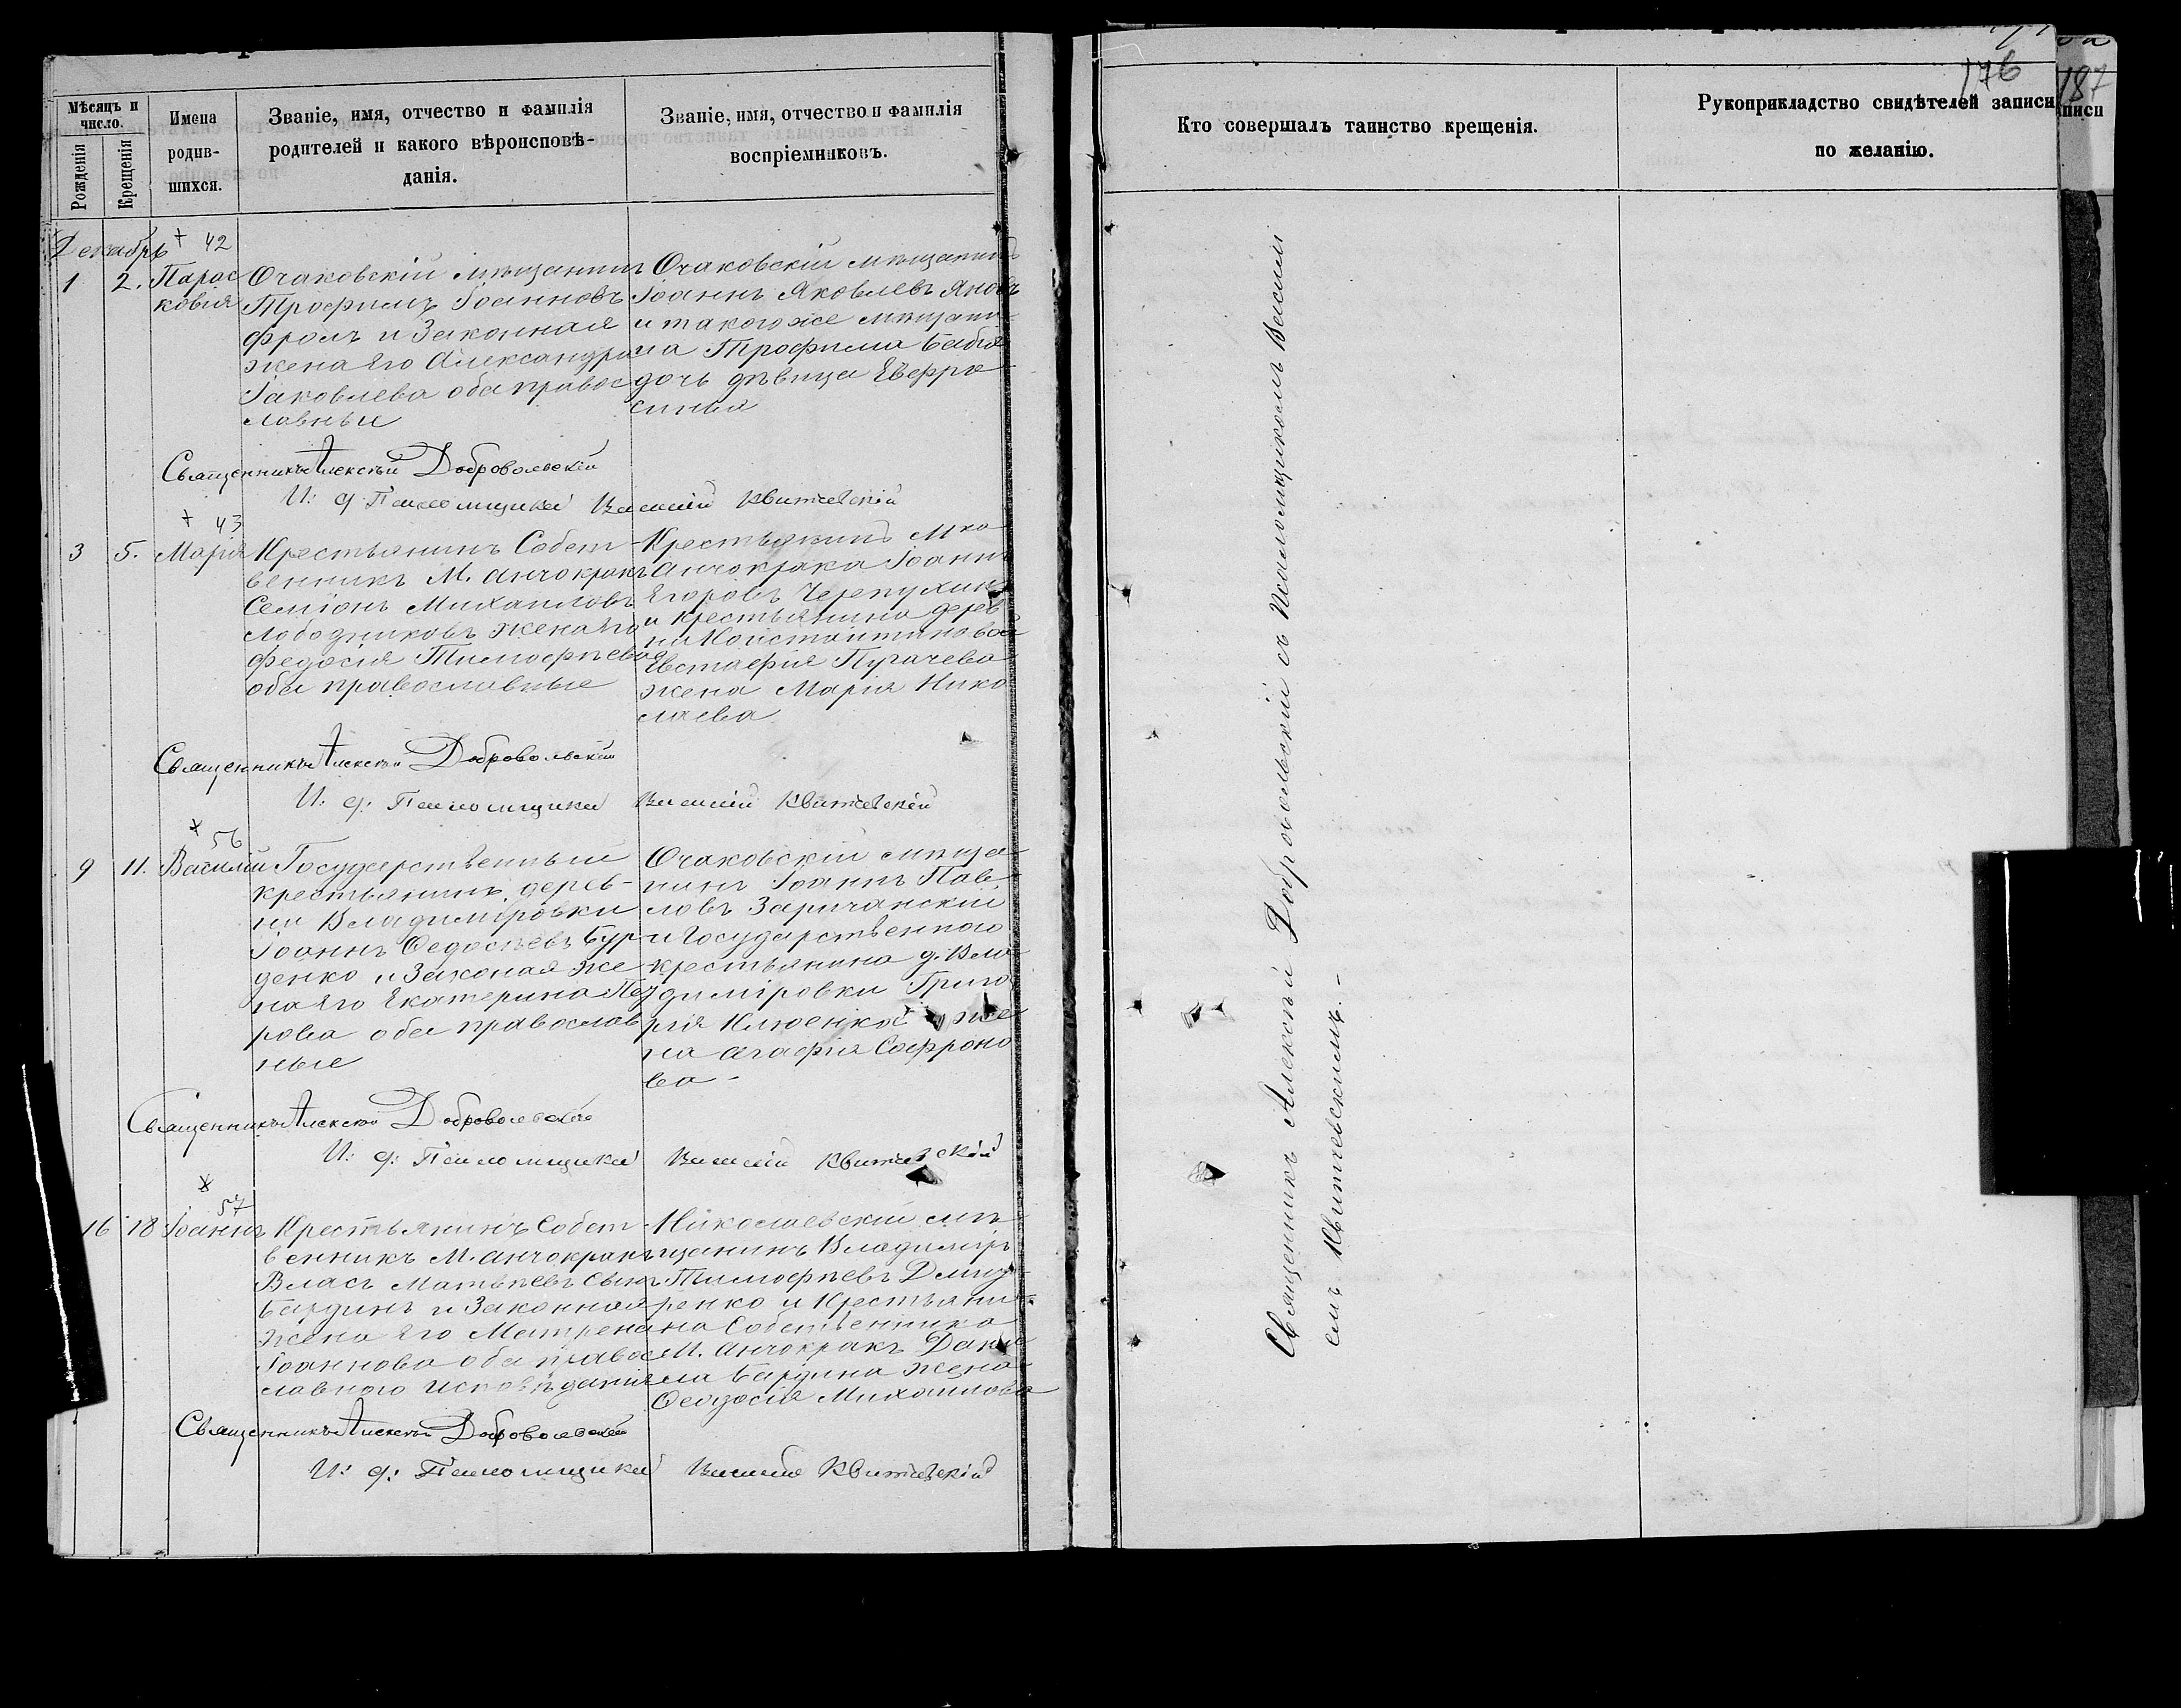 Мѣсяцъ и число.
Рожденія
Крещенія
Имена родив-
шихся.
Званіе, имя, отчество и фамилія
родителей и какого вѣроисповѣ-
данія.
Званіе, имя, отчество и фамилія
воспріемниковъ.
Декабрь
+ 42
1 2. Парас
ковия
Очаковскій мѣщанинъ
Трофимъ Іоанновъ
Фролъ и Законная
жена Его Александра
Іаковлева оба правос
лавные
Очаковскій мѣщанинъ
Іоаннъ Яковлевъ
и такого же мѣщани-
на Трофима Бабія
дочь дѣвица Евфро
синия
Священникъ Алексѣй Добровольскій
И: д Псаломщика Василій Квитчевскій
+ 43
3 5. Марія
Крестьянинъ Собст-
венникъ М. Анчокракъ
Семіонъ Михаиловъ
Слободчиковъ жена его
Федосія Тимофѣева
оба православные
Крестьянинъ М-ка
Анчокрака Іоаннъ
Егоровъ Черепухинъ
и крестьянина дерев
ни Константиновой
Евстафія Пугачева
жена Марія Нико
лаева
Священникъ Алексѣй Добровольскій
И: д: Псаломщика Василій Квитчевскій
+ 56
9 11. Василій
Государственный
крестьянинъ дерев-
ни Владиміровки
Іоаннъ Ѳедосѣевъ Бур-
денко и Законая же
на Его Екатерина Пет
рова оба православ
ные
Очаковскій мѣща-
нинъ Іоаннъ Пав-
ловъ Заричанскій
и Государственного
крестьянина д. Вла-
диміровки Григо
рія Клюенко же
на Агафія Софроно
ва -
Священникъ Алексѣй Добровольскій
И: д: Псаломщика Василій Квитчевскій
57
16 18 Іоаннъ
Крестьянинъ Собст-
венникъ М. Анчокракъ
Власъ Матвѣевъ Сынъ
Бардинъ и Законная
жена Его Матрена
Іоаннова оба правос
лавного исповѣданія
Николаевскій мѣ-
щанинъ Владиміръ
Тимофѣевъ
ренко и Крестьяни-
на Собственника
М. Анчокракъ Дани
ла Бардина жена
Ѳеодосія Михаилова
Священникъ Алексѣй Добровольскій
И: д: Псаломщика Василій Квитчевскій
176
187
Кто совершалъ таинство крещенія.
Рукоприкладство свидѣтелей записи
по желанію.
писи
Священникъ Алексѣй Добровольскій съ Псаломщикомъ Василі
емъ Квитчевскимъ. -